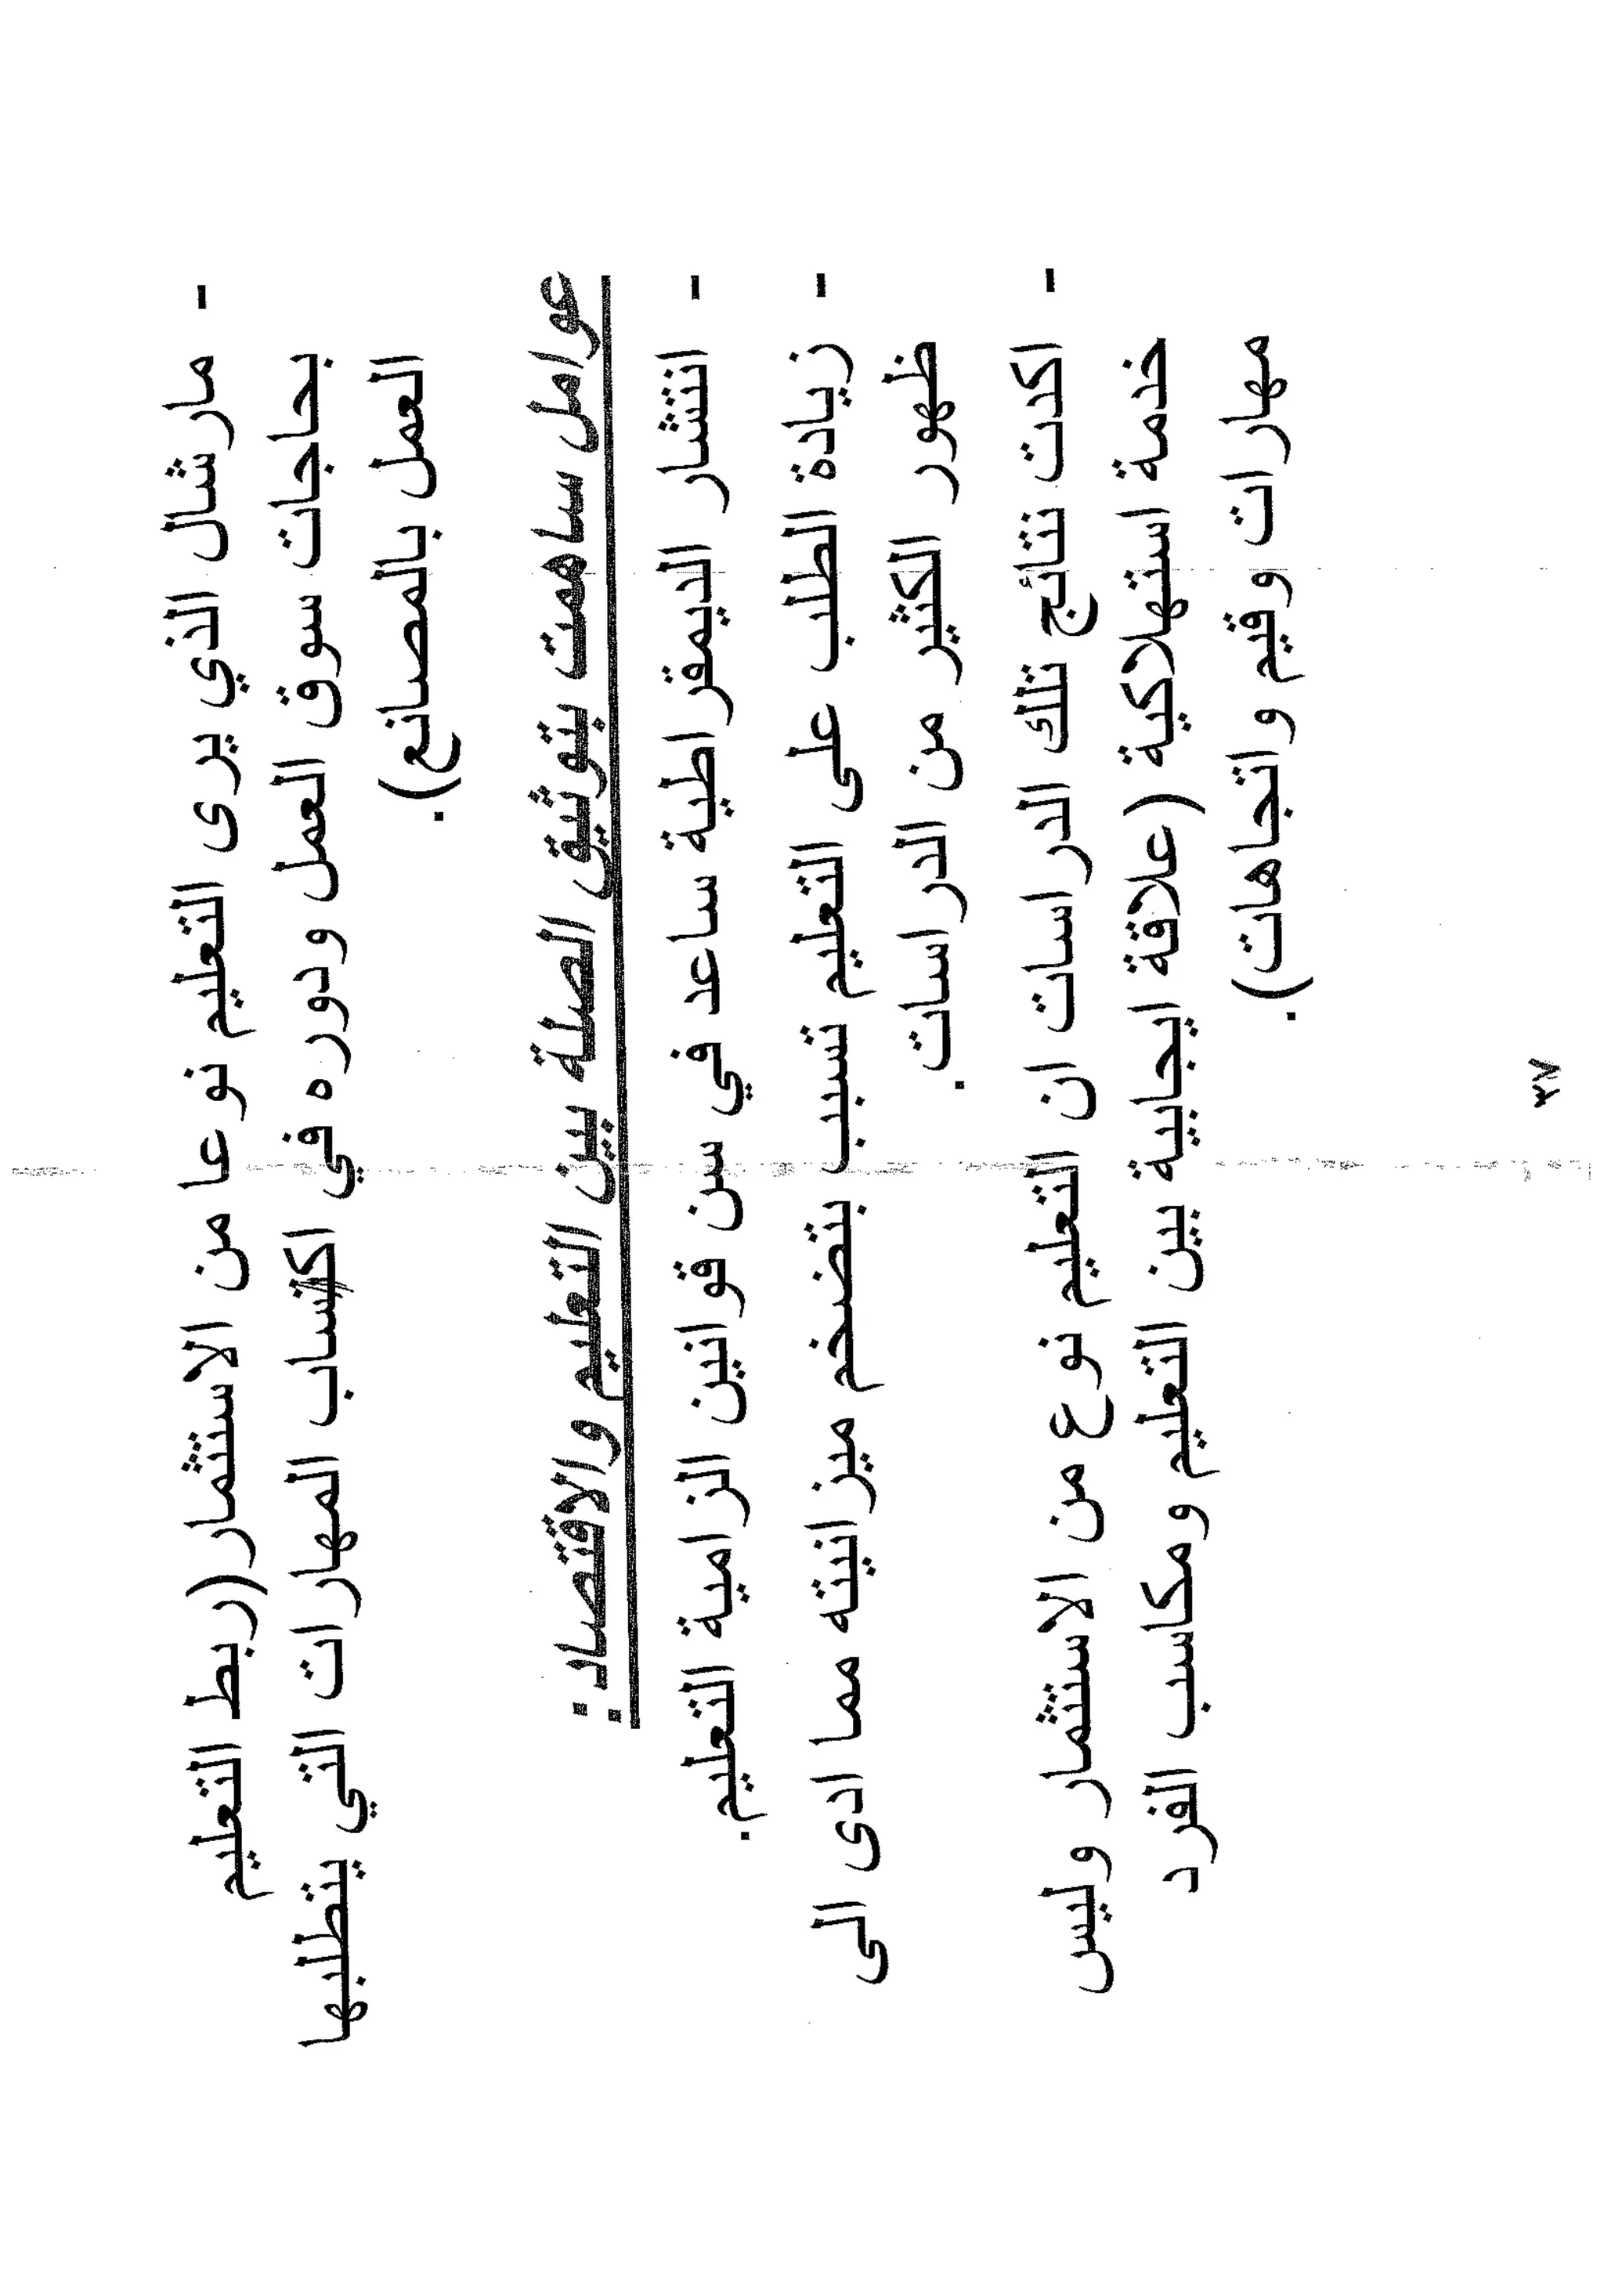 - مارشال الذي يرى التعليم نوعا من الاستثمار(ربط التعليم
بحاجات سوق العمل ودوره في اكتساب المهارات التي يتطلبها
العمل بالمصانع).
عوامل ساهمت بتوثيق الصلة بين التعليم والاقتصاد:
- انتشار الديمقراطية ساعد في سن قوانين الزامية التعليم.
- زيادة الطلب على التعليم تسبب بتضخم ميزانيته مما ادى الى
ظهور الكثير من الدراسات.
- اكدت نتائج تلك الدراسات ان التعليم نوع من الاستثمار وليس
خدمة استهلاكية (علاقة ايجابية بين التعليم ومكاسب الفرد
مهارات وقيم واتجاهات).
٣٧